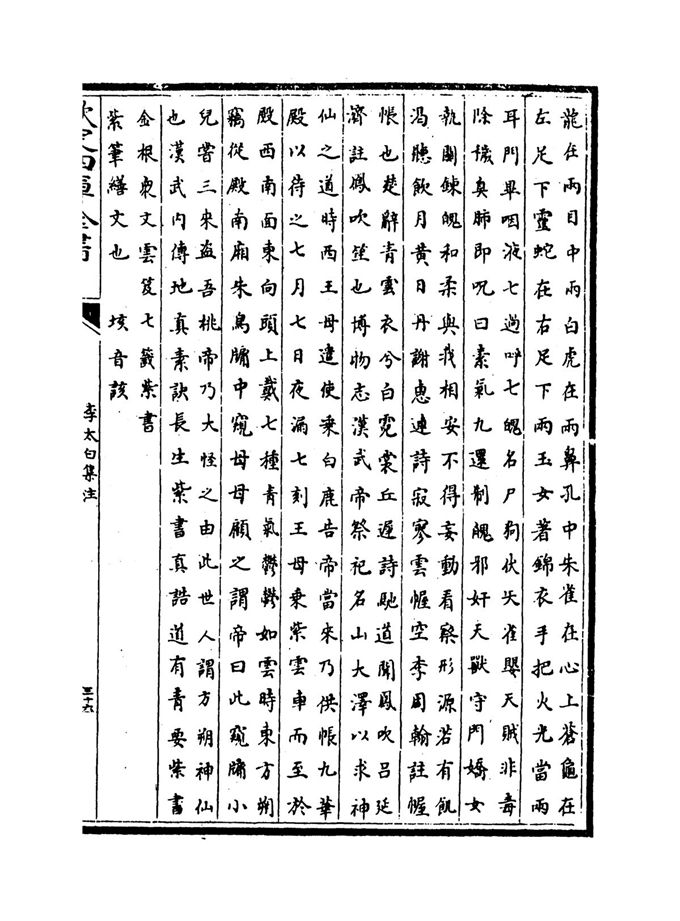 龍在兩目中兩白虎在兩鼻孔中朱雀在心上蒼龜在
左足下靈蛇在右足下兩玉女著錦衣手把火光當兩
耳門畢咽液七過呼七魄名尸狗伏矢雀嬰天賊非毒
除穢臭肺即呪曰素氣九還制魄邪奸天獸守門嬌女
執關鍊魄和柔與我相安不得妄動看察形源若有飢
渴聽飲月黄日丹謝惠連詩寂寥雲幄空李周翰註幄
帳也楚辭青雲衣兮白霓裳丘遲詩馳道聞鳳吹吕延
濟註鳳吹笙也博物志漢武帝祭祀名山大澤以求神
仙之道時西王母遣使乗白鹿告帝當來乃供帳九華
殿以待之七月七日夜漏七刻王母乗紫雲車而至於
殿西南面東向頭上戴七種青氣鬱鬱如雲時東方朔
竊從殿南廂朱鳥牖中窺母母顧之謂帝曰此窺牖小
兒嘗三來盗吾桃帝乃大怪之由此世人謂方朔神仙
也漢武内傳地真素訣長生紫書真誥道有青要紫書
金根衆文雲笈七籤紫書
紫筆繕文也 垓音該
欽定四庫全書
李太白集注
三十六